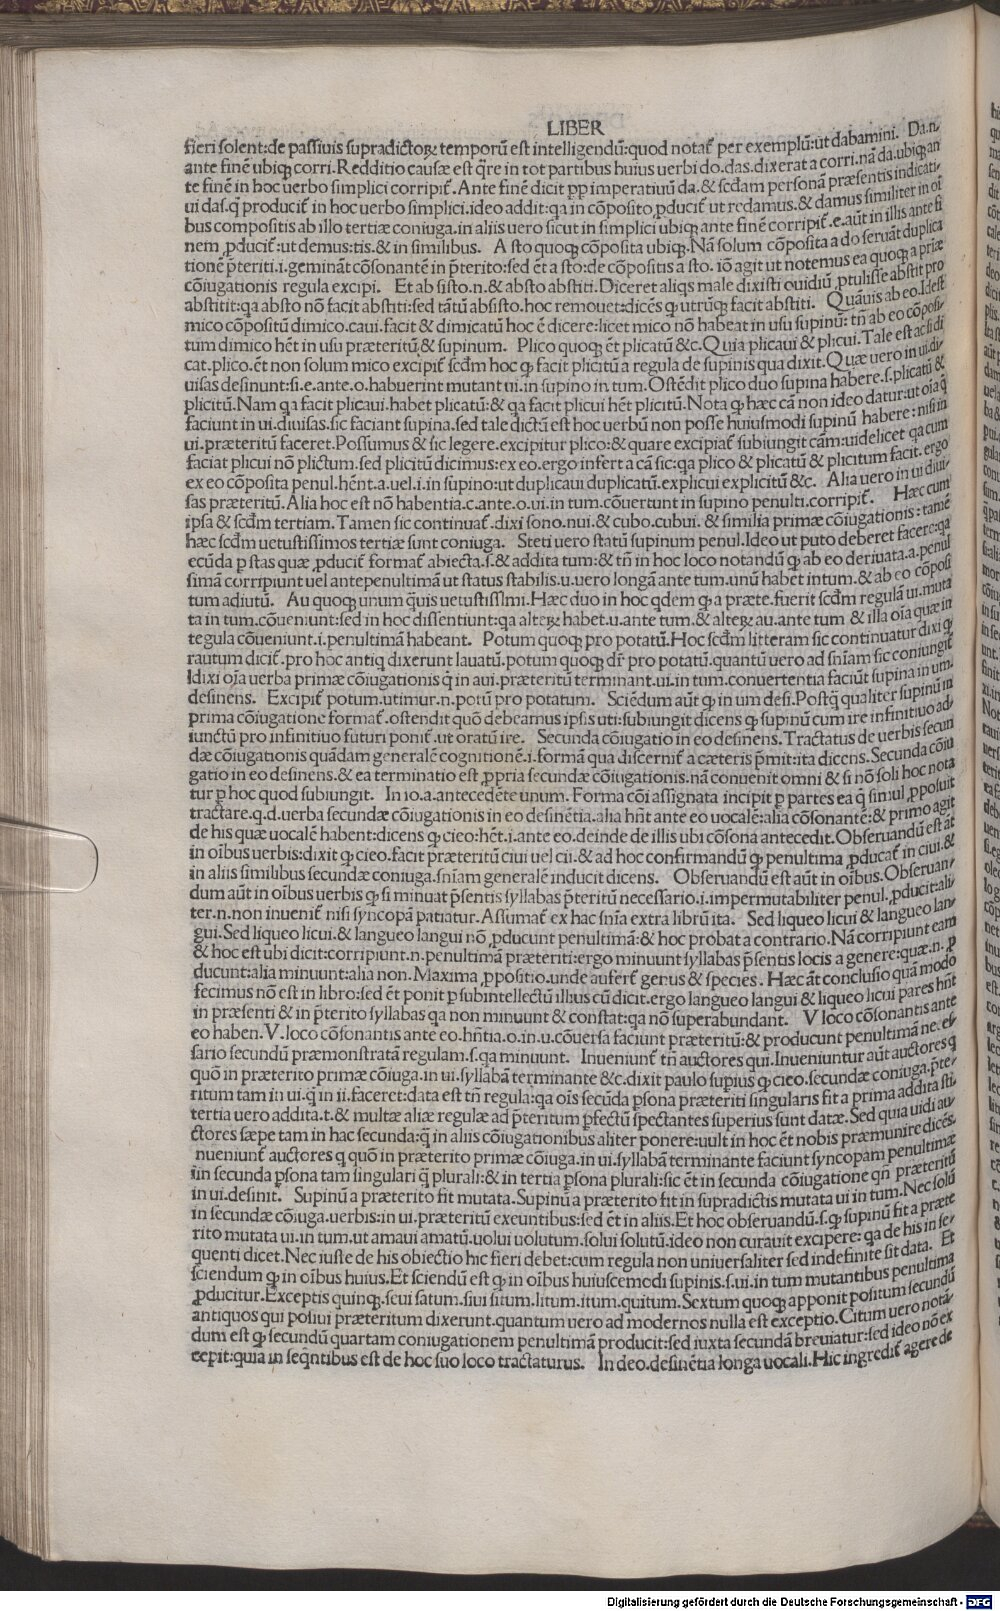 LIBER
fieri solent:de passiuis supradictoꝝ temporū est intelligendū:quod notat̃ per exemplū:ut dabamini. Da.n.
ante finē ubiqꝫ corri.Redditio causæ est q̃re in tot partibus huius uerbi do.das.dixerat a corri.nā da.ubiqꝫ an
te finē in hoc uerbo simplici corripit̃.Ante finē dicit ꝓp imperatiuū da.& scd̃am personā præsentis indicati
ui das.q̃ producit̃ in hoc uerbo simplici.ideo addit:qa in cōposito ꝓducit̃ ut redamus.& damus similiter in oī
bus compositis ab illo tertiæ coniuga.in aliis uero sicut in simplici ubiqꝫ ante finē corripit̃.e.aūt in illis ante fi
nem ꝓducit̃:ut demus:tis.& in similibus. A sto quoqꝫ cōposita ubiqꝫ.Nā solum cōposita a do seruāt duplica
tionē p̄teriti.i.gemināt cōsonantē in p̄terito:sed ēt a sto:de cōpositis a sto. iō agit ut notemus ea quoqꝫ a priæ
cōiugationis regula excipi. Et ab sisto.n.& absto abstiti.Diceret aliqs male dixisti ouidiū ꝓtulisse abstit pro
abstitit:qa absto nō facit abstiti:sed tātū absisto.hoc remouet:dicēs ꝙ utrūqꝫ facit abstiti. Quāuis ab eo.Idest
mico cōpositū dimico.caui.facit & dimicatū hoc ē dicere:licet mico nō habeat in usu supinū: tñ ab eo cōposi
tum dimico hēt in usu præteritū & supinum. Plico quoqꝫ ēt plicatū &c.Quia plicaui & plicui.Tale est ac si di
cat.plico.ēt non solum mico excipit̃ scd̃m hoc ꝙ facit plicitū a regula de supinis qua dixit.Quæ uero in ui.di
uisas desinunt:si.e.ante.o.habuerint mutant ui.in supino in tum.Ostēdit plico duo supina habere.s.plicatū &
plicitū.Nam qa facit plicaui.habet plicatū:& qa facit plicui hēt plicitū.Nota ꝙ hæc cā non ideo datur:ut oīa q̄
faciunt in ui.diuisas.sic faciant supina.sed tale dictū est hoc uerbū non posse huiusmodi supinū habere:nisi in
ui.præteritū faceret.Possumus & sic legere.excipitur plico:& quare excipiat̃ subiungit cām:uidelicet qa cum
faciat plicui nō plictum.sed plicitū dicimus:ex eo.ergo infert a cā sic:qa plico & plicatū & plicitum facit.ergo
ex eo cōposita penul.hēnt.a.uel.i.in supino:ut duplicaui duplicatū.explicui explicitū &c. Alia uero in ui diui
sas præteritū.Alia hoc est nō habentia.c.ante.o.ui.in tum.cōuertunt in supino penulti.corripit̃. Hæc cum
ipsa & scd̃m tertiam.Tamen sic continuat̃.dixi sono.nui.& cubo.cubui. & similia primæ cōiugationis:tamē
hæc scd̃m uetustissimos tertiæ sunt coniuga. Steti uero statū supinum penul.Ideo ut puto deberet facere:qa
ecūda p stas quæ ꝓducit̃ format̃ abiecta.s.& addita tum:& tñ in hoc loco notandū ꝙ ab eo deriuata.a.penul
simā corripiunt uel antepenultimā ut status stabilis.u.uero longā ante tum.unū habet intum.& ab eo cōposi
tum adiutū. Au quoqꝫ unum q̄uis uetustisslmi.Hæc duo in hoc qdem ꝙ a præte.fuerit scd̃m regulā ui.muta
ta in tum.cōueniunt:sed in hoc dissentiunt:qa alteꝝ habet.u.ante tum.& alteꝝ au.ante tum & illa oīa quæ in
tegula cōueniunt.i.penultimā habeant. Potum quoqꝫ pro potatū.Hoc scd̃m litteram sic continuatur dixi ꝙ
rautum dicit̃.pro hoc antiq dixerunt lauatū.potum quoqꝫ dr̄ pro potatū.quantū uero ad sñiam sic coniungit̃
Idixi oīa uerba primæ cōiugationis q̄ in aui.præteritū terminant.ui.in tum.conuertentia faciūt supina in um.
desinens. Excipit̃ potum.utimur.n.potū pro potatum. Sciēdum aūt ꝙ in um desi.Postq̄ qualiter supinū in
prima cōiugatione format̃.ostendit quō debeamus ipsis uti:subiungit dicens ꝙ supinū cum ire infinitiuo ad
iunctū pro infinitiuo futuri ponit̃.ut oratū ire. Secunda cōiugatio in eo desinens.Tractatus de uerbis secun
dæ cōiugationis quādam generalē cognitionē.i.formā qua discernit̃ a cæteris p̄mit:ita dicens.Secunda cōiu
gatio in eo desinens.& ea terminatio est ꝓpria secundæ cōiugationis.nā conuenit omni & si nō soli hoc nota
tur p hoc quod subiungit. In io.a.antecedēte unum.Forma cōi assignata incipit p partes ea q̄ simul ꝓposuit
tractare.q.d.uerba secundæ cōiugationis in eo desinētia.alia hñt ante eo uocalē:alia cōsonantē:& primo agit
de his quæ uocalē habent:dicens ꝙ cieo:hēt.i.ante eo.deinde de illis ubi cōsona antecedit.Obseruandū est āt
in oībus uerbis:dixit ꝙ cieo.facit præteritū ciui uel cii.& ad hoc confirmandū ꝙ penultima ꝓducat̃ in ciui.&
in aliis similibus secundæ coniuga.sñiam generalē inducit dicens. Obseruandū est aūt in oībus.Obseruan
dum aūt in oībus uerbis ꝙ si minuat p̄sentis syllabas p̄teritū necessario.i.impermutabiliter penul.ꝓducit:ali
ter.n.non inuenit̃ nisi syncopā patiatur.Assumat̃ ex hac sñia extra librū ita. Sed liqueo licui & langueo lan
gui.Sed liqueo licui.& langueo langui nō ꝓducunt penultimā:& hoc probat a contrario.Nā corripiunt eam
& hoc est ubi dicit:corripiunt.n.penultimā præteriti:ergo minuunt syllabas p̄sentis locis a genere:quæ.n.ꝓ
ducunt:alia minuunt:alia non.Maxima ꝓpositio.unde aufert̃ genus & species. Hæc āt conclusio quā modo
fecimus nō est in libro:sed ēt ponit p subintellectū illius cū dicit.ergo langueo langui & liqueo licui pares hñt
in præsenti & in p̄terito syllabas qa non minuunt & constat:qa nō superabundant. V loco cōsonantis ante
eo haben.V.loco cōsonantis ante eo.hñtia.o.in u.cōuersa faciunt præteritū:& producunt penultimā neces
sario secundū præmonstratā regulam.s.qa minuunt. Inueniunt̃ tñ auctores qui.Inueniuntur aūt auctores q
quō in præterito primæ cōiuga.in ui.syllabā terminante &c.dixit paulo supius ꝙ cieo.secundæ coniuga.p̄te
ritum tam in ui.q̄ in ii.faceret:data est tñ regula:qa oīs secūda psona præteriti singularis fit a prima addita sti.
tertia uero addita.t.& multæ aliæ regulæ ad p̄teritum pfectū spectantes superius sunt datæ.Sed quia uidi au
ctores sæpe tam in hac secunda:q̄ in aliis cōiugationibus aliter ponere:uult in hoc ēt nobis præmunire dicēs.
nueniunt̃ auctores q quō in præterito primæ cōiuga.in ui.syllabā terminante faciunt syncopam penultimæ
iin secunda psona tam singulari q̄ plurali:& in tertia psona plurali:sic ēt in secunda cōiugatione qñ præteritū
in ui.desinit. Supinū a præterito fit mutata.Supinū a præterito fit in supradictis mutata ui in tum.Nec solū
in secundæ cōiuga.uerbis:in ui.præteritū exeuntibus:sed ēt in aliis.Et hoc obseruandū.s.ꝙ supinū fit a præte
rito mutata ui.in tum.ut amaui amatū.uolui uolutum.solui solutū.ideo non curauit excipere:qa de his in se
quenti dicet.Nec iuste de his obiectio hic fieri debet:cum regula non uniuersaliter sed indefinite sit data. Et
sciendum ꝙ in oībus huius.Et sciendū est ꝙ in oībus huiuscemodi supinis.s.ui.in tum mutantibus penultima
ꝓducitur.Exceptis quinqꝫ.seui satum.siui situm.litum.itum.quitum.Sextum quoqꝫ apponit positum secundū
antiquos qui posiui præteritum dixerunt.quantum uero ad modernos nulla est exceptio.Citum uero notā
dum est ꝙ secundū quartam coniugationem penultimā producit:sed iuxta secundā breuiatur:sed ideo nō ex
cepit:quia in seq̄ntibus est de hoc suo loco tractaturus. In deo.desinētia longa uocali.Hic ingredit̃ agere de
Digitalisierung gefördert durch die Deutsche Forschungsgemeinschaft - DFG